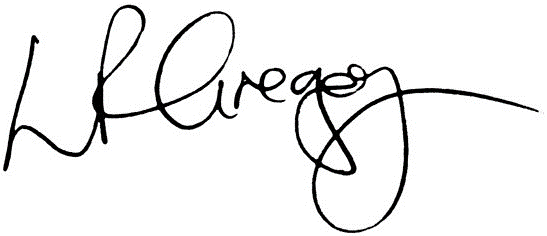 LR Gregory